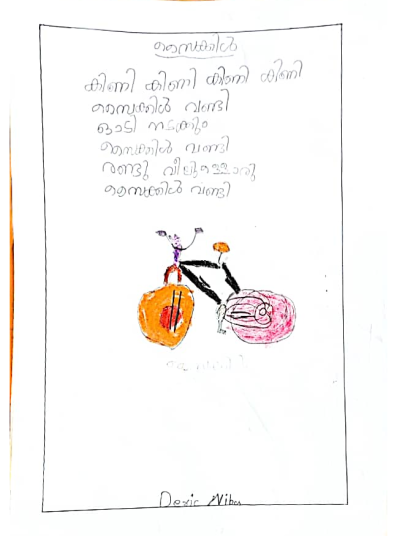 സൈക്കിൾ
കിണി കിണി കിണി കിണി
സൈക്കിൾ വണ്ടി
ഓടി നടക്കും
സൈക്കിൾ വണ്ടി
രണ്ടു വീലുള്ളൊരു
സൈക്കിൾ വണ്ടി